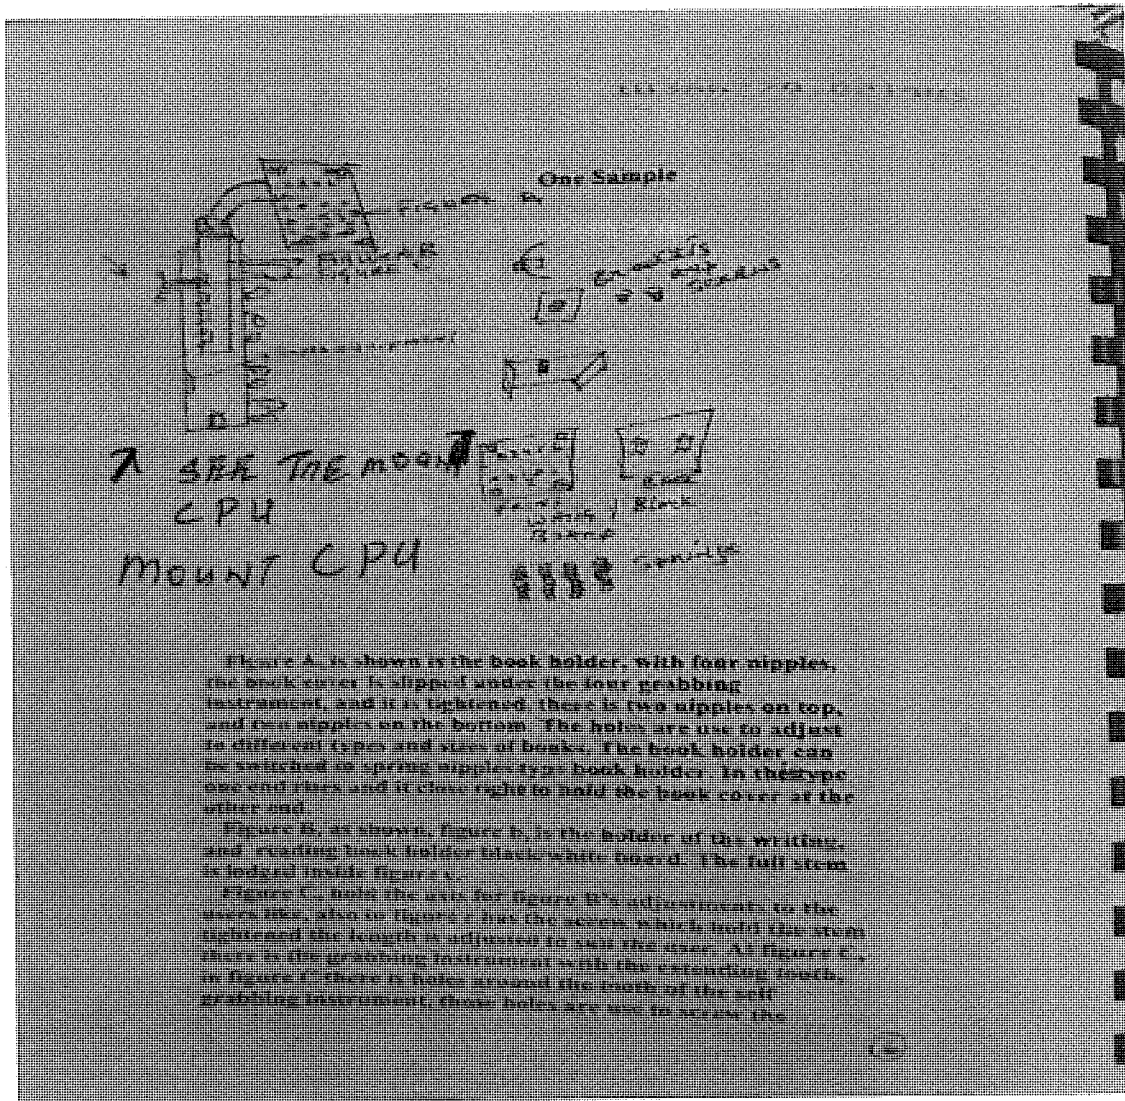 One Sample
FIGURE
FIGURE C
SEE THE MOUNT
CPU
MOUNT CPU
Block
Springs
Figure A, is shown is the book holder, with four nipples,
the book cover is slipped under the four grabbing
instrument, and it is tightened, there is two nipples on top,
and two nipples on the bottom. The holes are use to adjust
to different types and sizes of books. The book holder can
be switched to spring nipples type book holder. In this type
one end rises and it close right to hold the book cover at the
other end.
Figure B, as shown, figure b, is the holder of the writing,
and reading book holder black/white board. The full stem
is lodged inside figure c.
Figure C, hold the axis for figure B's adjustments to the
users like, also to figure c has the screw which hold the stem
tightened the length is adjusted to suit the user. At figure c,
there is the grabbing instrument with the extending tooth,
in figure C there is holes around the tooth of the self
grabbing instrument, those holes are use to screw the